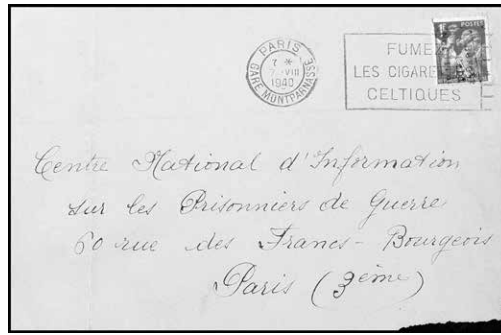 PARIS
GARE MONTPARNASSE
7 *
VIII
1940
FUMEZ
LES CIGARE
CELTIQUES
POSTES
Centre National d'Information
sur les Prisonniers de Guerre
60 rue des Francs-Bourgeois
Paris (3ème)